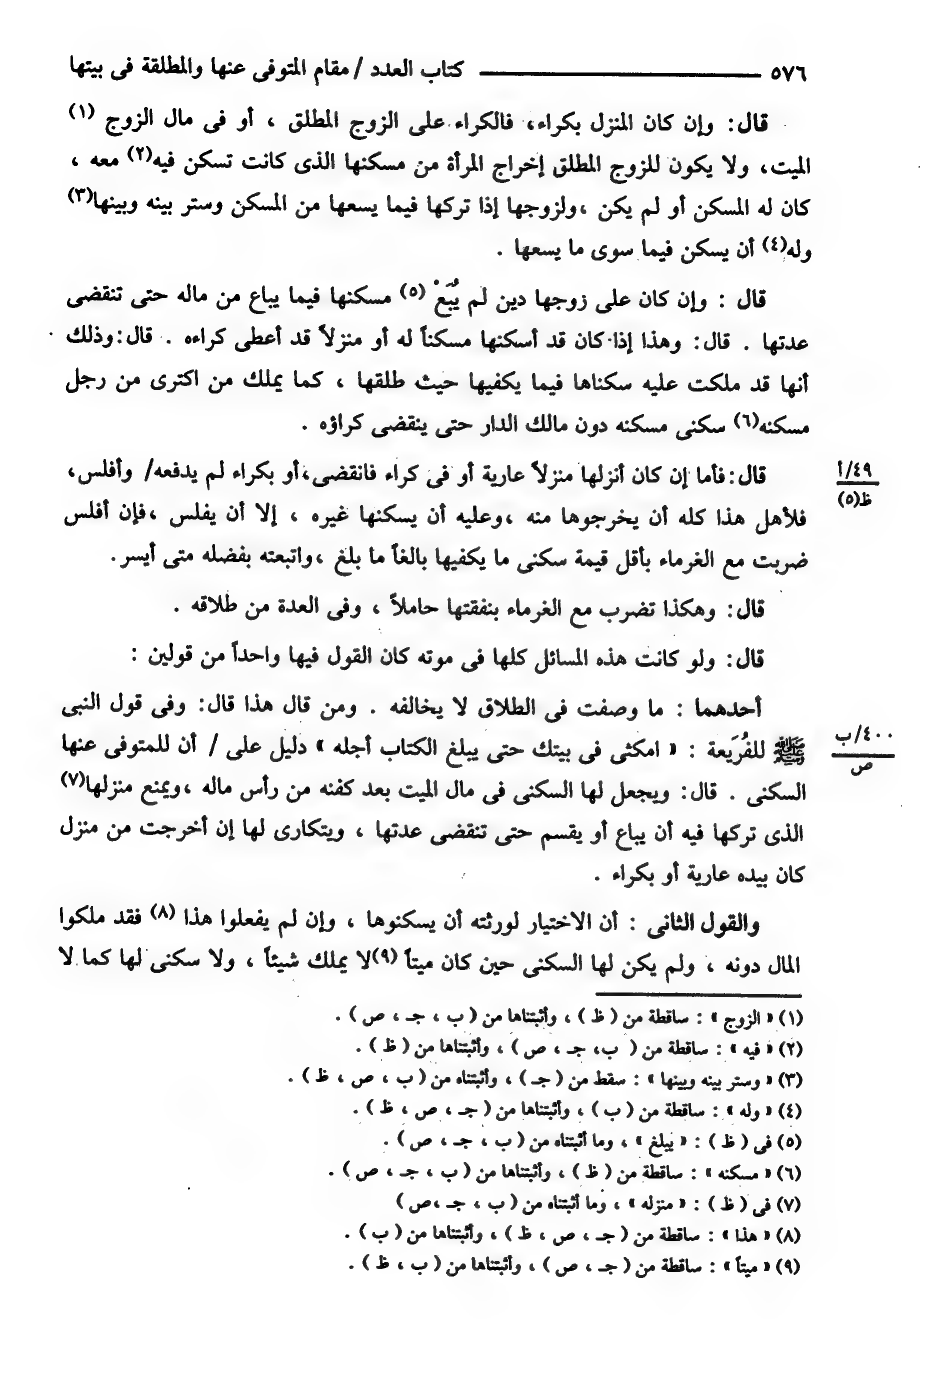 ٥٧٦ كتاب العدد / مقام المتوفى عنها والمطلقة فى بيتها
قال: وإن كان المنزل بكراء، فالكراء على الزوج المطلق ، أو فى مال الزوج (١)
الميت، ولا يكون للزوج المطلق إخراج المرأة من مسكنها الذى كانت تسكن فيه(٢) معه ،
كان له المسكن أو لم يكن ،ولزوجها إذا تركها فيما يسعها من المسكن وستر بينه وبينها(٣)
وله(٤) أن يسكن فيما سوى ما يسعها .
قال : وإن كان على زوجها دين لم يُبَعْ (٥) مسكنها فيما يباع من ماله حتى تنقضى
عدتها . قال: وهذا إذا كان قد أسكنها مسكناً له أو منزلاً قد أعطى كراءه . قال:وذلك
أنها قد ملكت عليه سكناها فيما يكفيها حيث طلقها ، كما يملك من اكترى من رجل
مسكنه(٦) سكنى مسكنه دون مالك الدار حتى ينقضى كراؤه .
قال:فأما إن كان أنزلها منزلاً عارية أو فى كراء فانقضى،أو بكراء لم يدفعه/ وأفلس،
٤٩/أ
ظ(٥)
فلأهل هذا كله أن يخرجوها منه ،وعليه أن يسكنها غيره ، إلا أن يفلس ،فإن أفلس
ضربت مع الغرماء بأقل قيمة سكنى ما يكفيها بالغاً ما بلغ ،واتبعته بفضله متى أيسر.
قال: وهكذا تضرب مع الغرماء بنفقتها حاملاً ، وفى العدة من طلاقه .
قال: ولو كانت هذه المسائل كلها فى موته كان القول فيها واحداً من قولين :
أحدهما : ما وصفت فى الطلاق لا يخالفه . ومن قال هذا قال: وفى قول النبى
٤٠٠/ب
ص
ﷺ للفُرَيعة : « امكثى فى بيتك حتى يبلغ الكتاب أجله » دليل على / أن للمتوفى عنها
السكنى . قال: ويجعل لها السكنى فى مال الميت بعد كفنه من رأس ماله ،ويمنع منزلها(٧)
الذى تركها فيه أن يباع أو يقسم حتى تنقضى عدتها ، ويتكارى لها إن أخرجت من منزل
كان بيده عارية أو بكراء .
والقول الثانى : أن الاختيار لورثته أن يسكنوها ، وإن لم يفعلوا هذا (٨) فقد ملكوا
المال دونه ، ولم يكن لها السكنى حين كان ميتاً (٩)لا يملك شيئاً ، ولا سكنى لها كما لا
(١) « الزوج » : ساقطة من ( ظ ) ، وأثبتناها من ( ب ، جـ ، ص ) .
(٢) « فيه » : ساقطة من ( ب، جـ ، ص ) ، وأثبتناها من ( ظ ) .
(٣) « وستر بينه وبينها » : سقط من ( جـ ) ، وأثبتناه من ( ب ، ص ، ظ ) .
(٤) « وله » : ساقطة من ( ب ) ، وأثبتناها من ( جـ ، ص ، ظ ) .
(٥) فى ( ظ ) : « يبلغ » ، وما أثبتناه من ( ب ، جـ ، ص ) .
(٦) « مسكنه » : ساقطة من ( ظ ) ، وأثبتناها من ( ب ، جـ ، ص ) .
(٧) فى ( ظ ) : « منزله » ، وما أثبتناه من ( ب ، جـ ،ص )
(٨) « هذا » : ساقطة من ( جـ ، ص ، ظ ) ، وأثبتناها من ( ب ) .
(٩) « ميتاً » : ساقطة من ( جـ ، ص ) ، وأثبتناها من ( ب ، ظ ) .